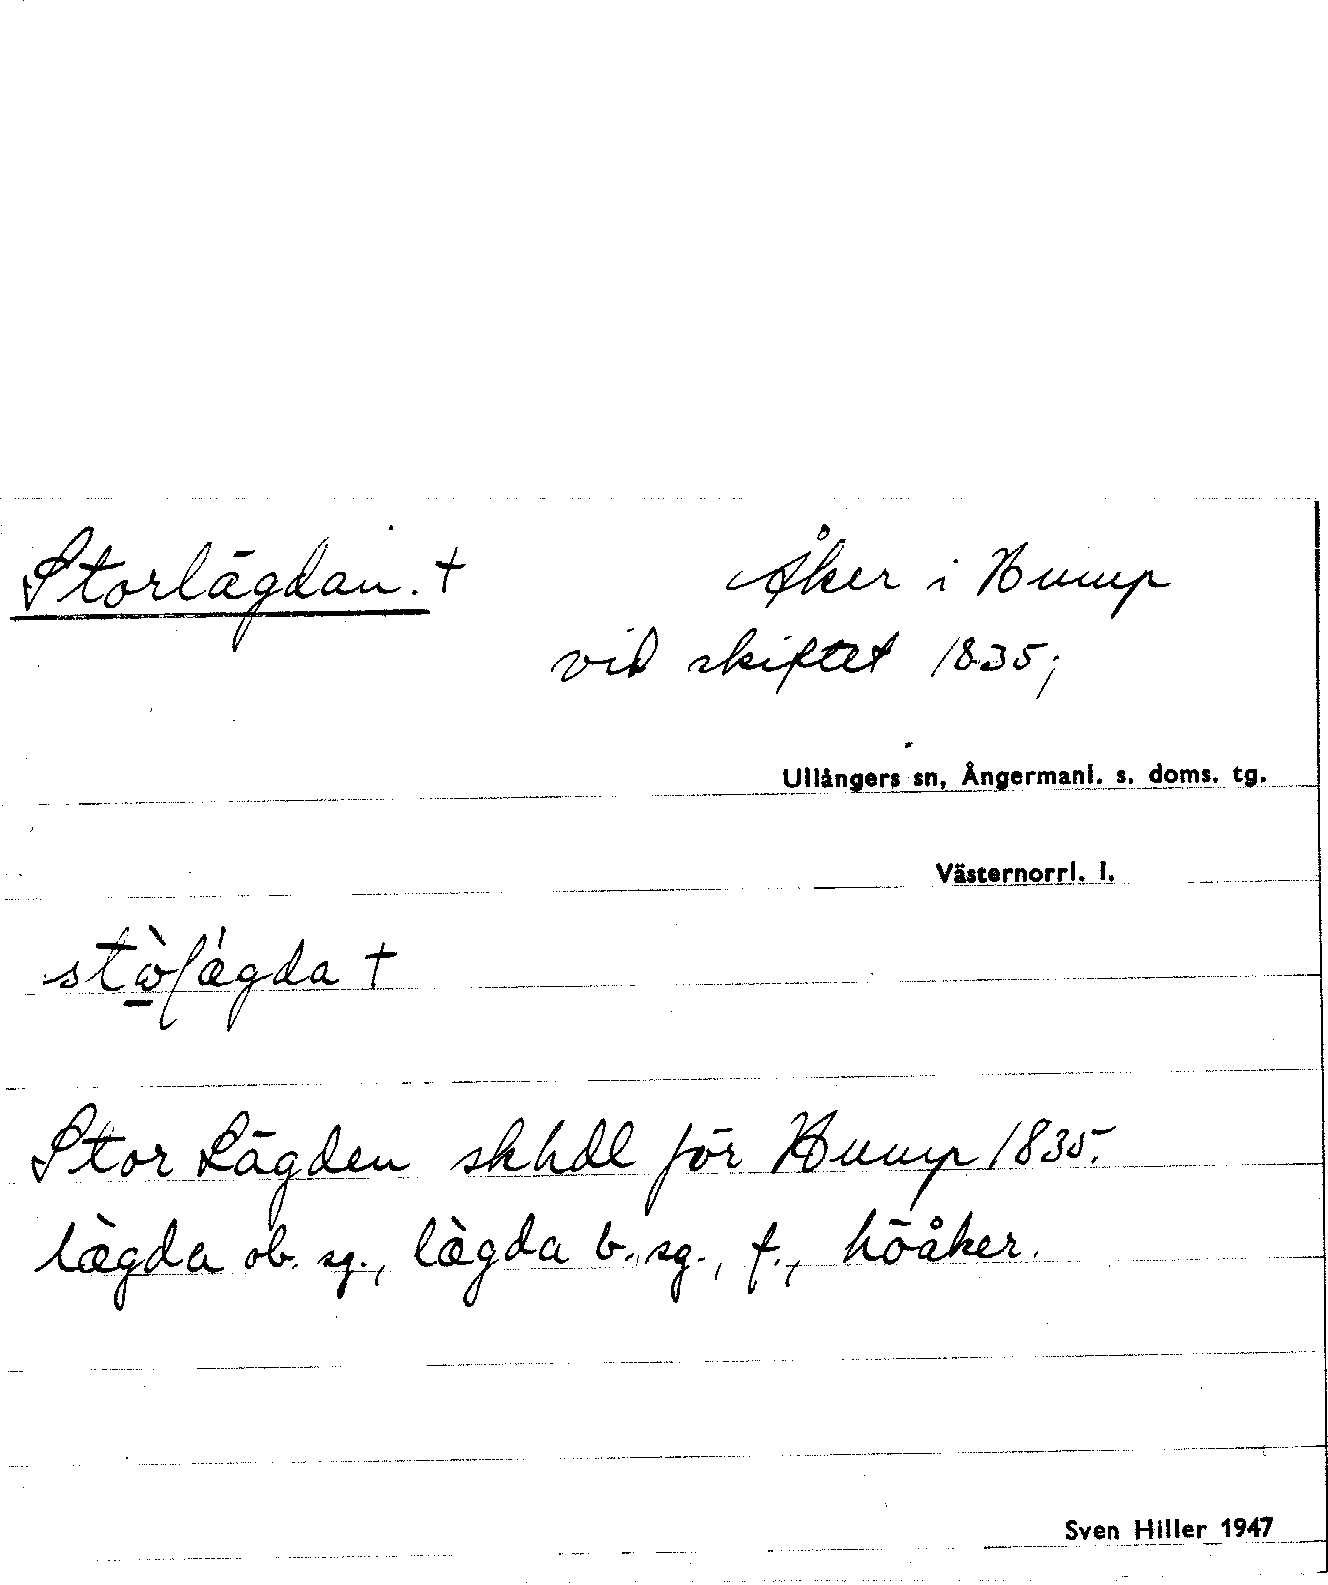 Storlägdan. † Åker i Hump
vid skiftet 1835;
Ullångers sn, Ångermanl. s. doms. tg.
Västernorrl. l.
Stor Lägden skhdl för Hump 1835.
læ̀gda ob. sg., læ̀gda b. sg., f., höåker.
Sven Hiller 1947